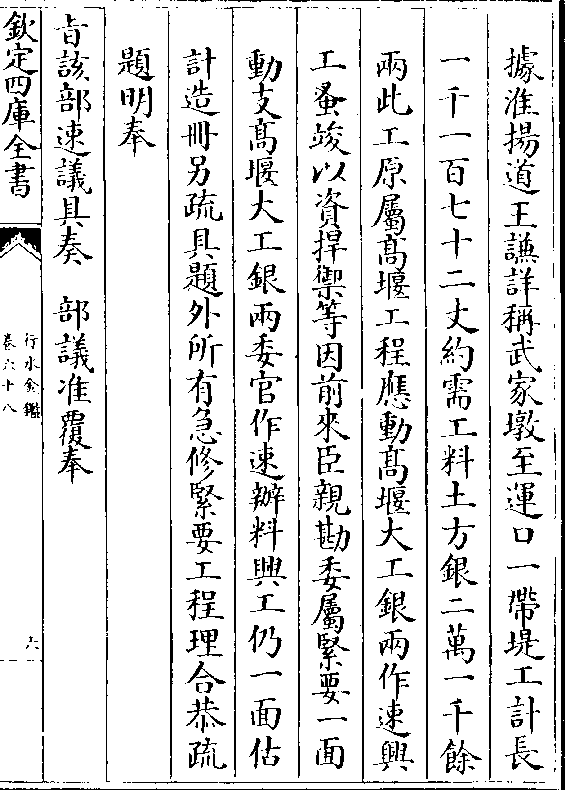 據淮揚道王謙詳稱武家墩至運口一帶堤工計長
一千一百七十二丈約需工料土方銀二萬一千餘
兩此工原屬髙堰工程應動髙堰大工銀兩作速興
工蚤竣以資捍禦等因前來臣親勘委屬緊要一面
動支髙堰大工銀兩委官作速辦料興工仍一面估
計造冊另疏具題外所有急修緊要工程理合恭疏
題明奉
旨該部速議具奏　部議准覆奉
欽定四庫全書
行水金鑑
卷六十八
六